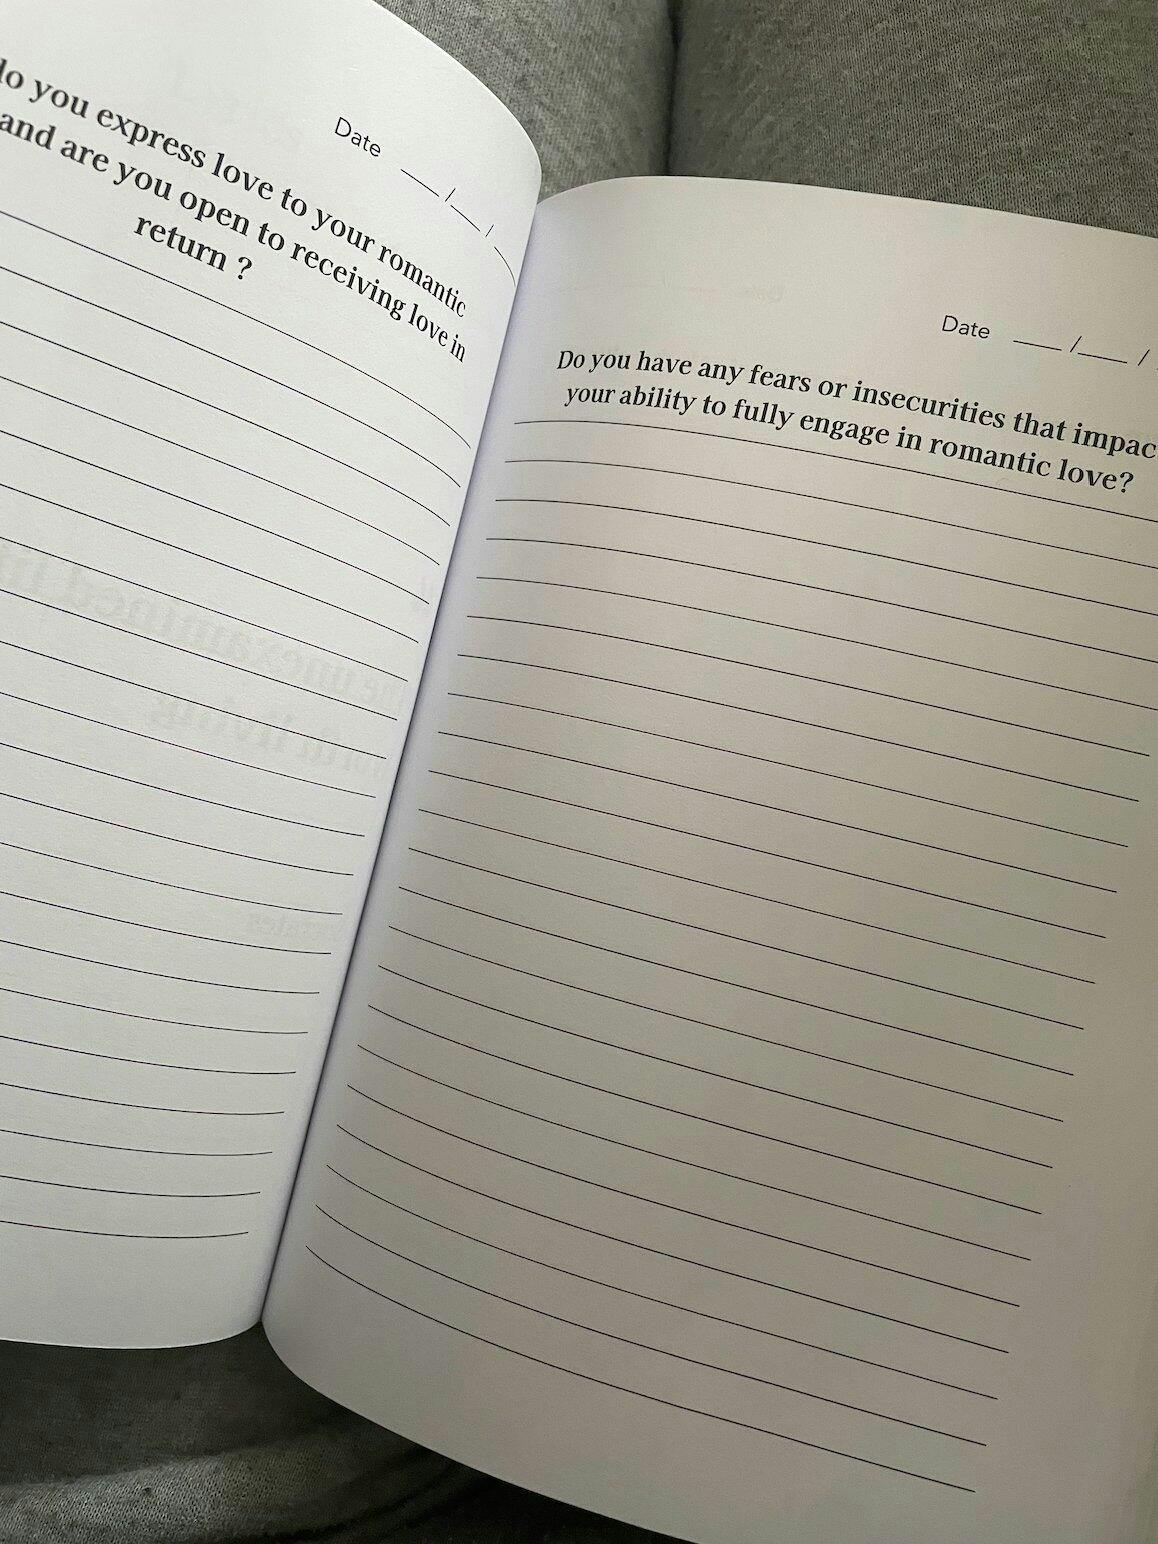 Date __/__/
do you express love to your romantic
and are you open to receiving love in
return ?
Date ___/___/
Do you have any fears or insecurities that impac
your ability to fully engage in romantic love?